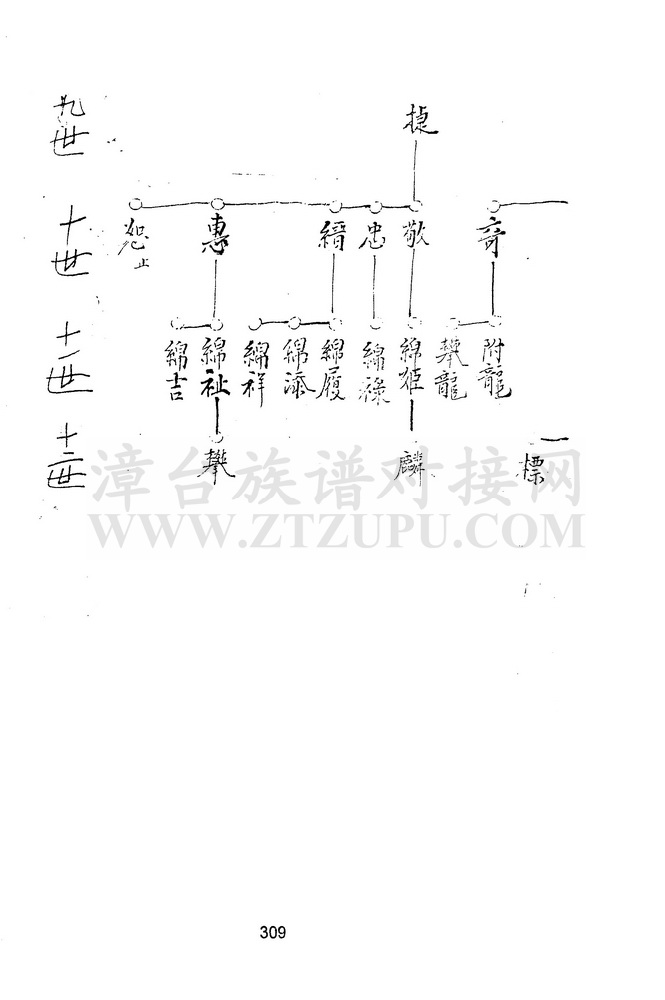 九世
捷
十世
奇
敬
忠
縉
惠
恕 止
十一世
附龍
攀龍
綿姬
綿祿
綿履
綿添
綿祥
綿祉
綿吉
十二世
一
標
麟
攀
漳台族谱对接网
WWW.ZTZUPU.COM
309